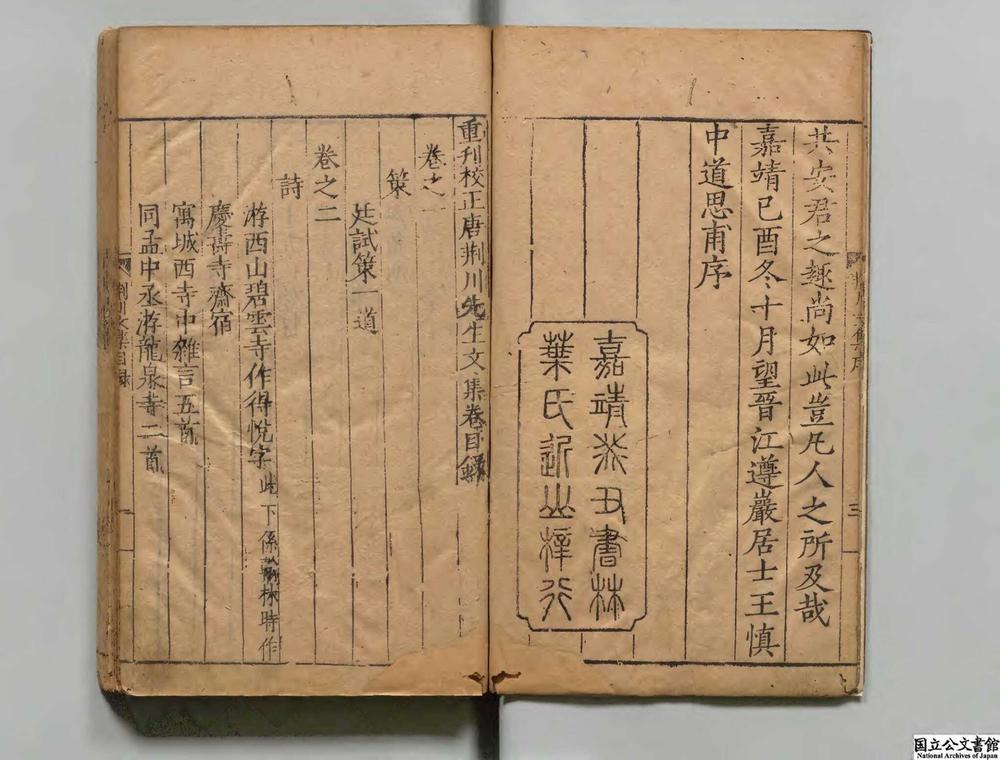 共安君之趣尚如此豈凡人之所及哉
嘉靖己酉冬十月望晉江遵巖居士王慎
中道思甫序
嘉靖癸丑書林
葉氏近山梓行
三
重刊校正唐荆川先生文集卷目錄
卷之
策
廷試策一道
卷之二
詩
游西山碧雲寺作得悅字 此下係翰林時作
慶壽寺齋宿
寓城西寺中雜言五首
同孟中丞游龍泉寺二首
荆川文集目錄
一
国立公文書館
National Archives of Japan